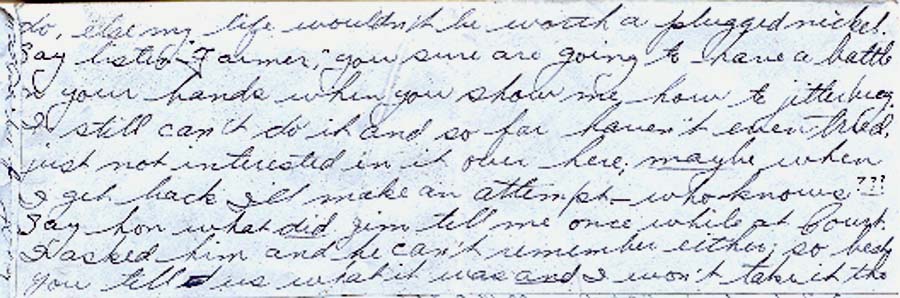 do, else my life wouldn't be worth a plugged nickel.
Say listen "Farmer," you sure are going to have a battle
n your hands when you show me how to jitterbug.
I still can't do it and so far haven't even tried,
just not interested in it over here; maybe when
I get back I'll make an attempt – who knows???
Say hon what did Jim tell me once while at
I asked him and he can't remember either; so best
you tell us what it was and I won't take it the